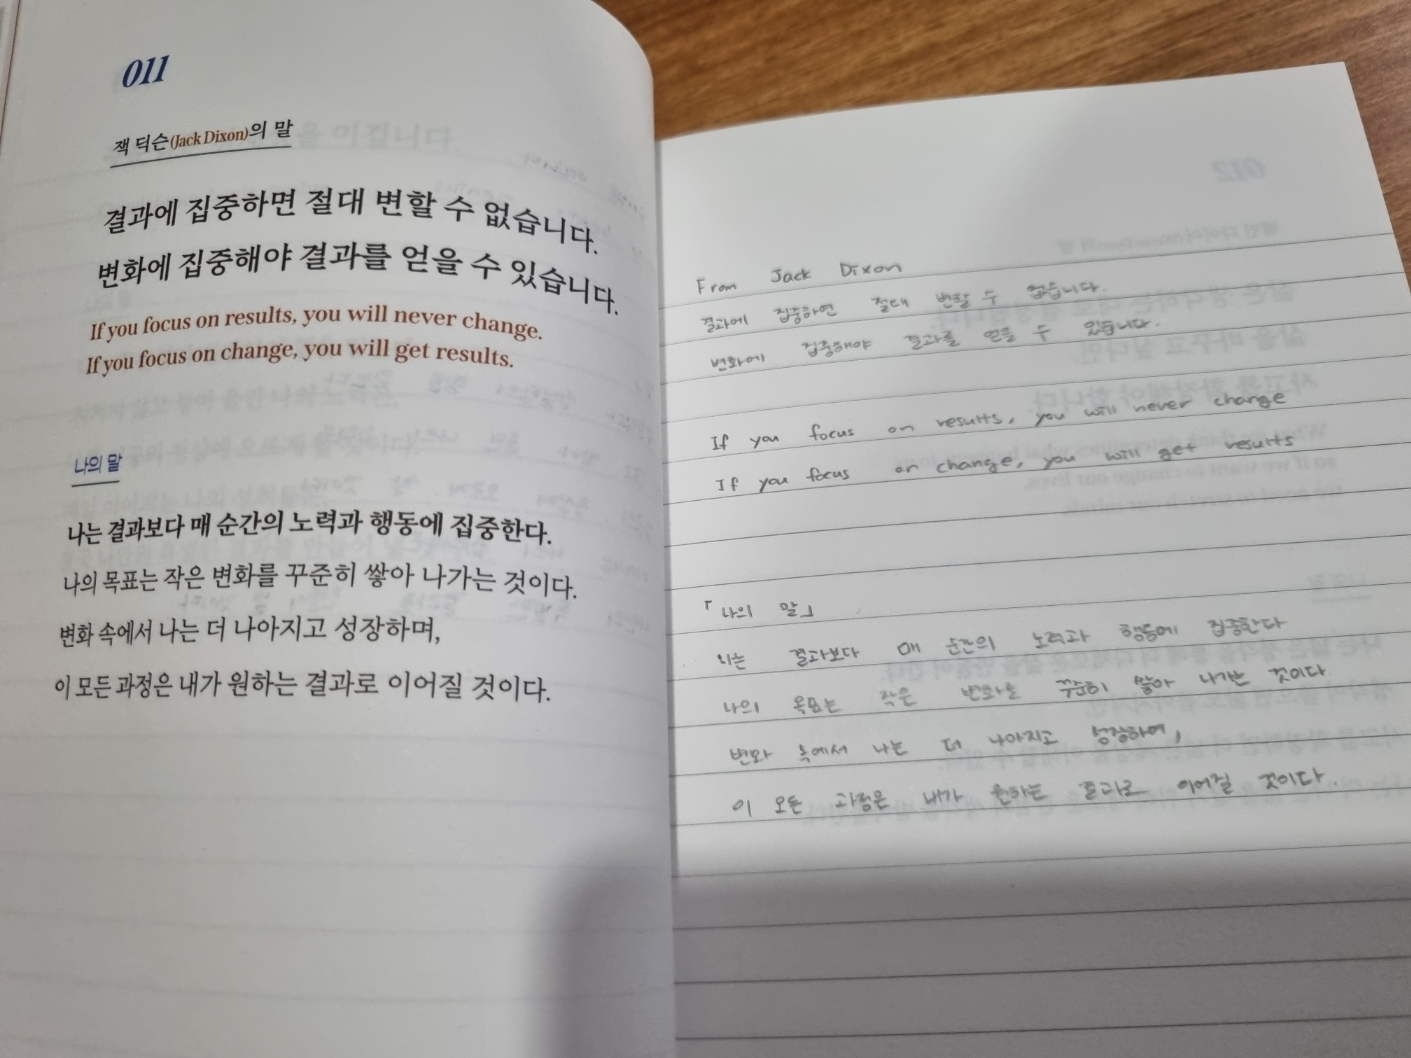 011
잭 딕슨(Jack Dixon)의 말
결과에 집중하면 절대 변할 수 없습니다.
변화에 집중해야 결과를 얻을 수 있습니다.
If you focus on results, you will never change.
If you focus on change, you will get results.
나의 말
나는 결과보다 매 순간의 노력과 행동에 집중한다.
나의 목표는 작은 변화를 꾸준히 쌓아 나가는 것이다.
변화 속에서 나는 더 나아지고 성장하며,
이 모든 과정은 내가 원하는 결과로 이어질 것이다.
From Jack Dixon
결과에 집중하면 절대 변할 수 없습니다.
변화에 집중해야 결과를 얻을 수 있습니다.
If you focus on results, you will never change
If you focus on change, you will get results
「나의 말」
나는 결과보다 매 순간의 노력과 행동에 집중한다
나의 목표는 작은 변화를 꾸준히 쌓아 나가는 것이다
변화 속에서 나는 더 나아지고 성장하며,
이 모든 과정은 내가 원하는 결과로 이어질 것이다.